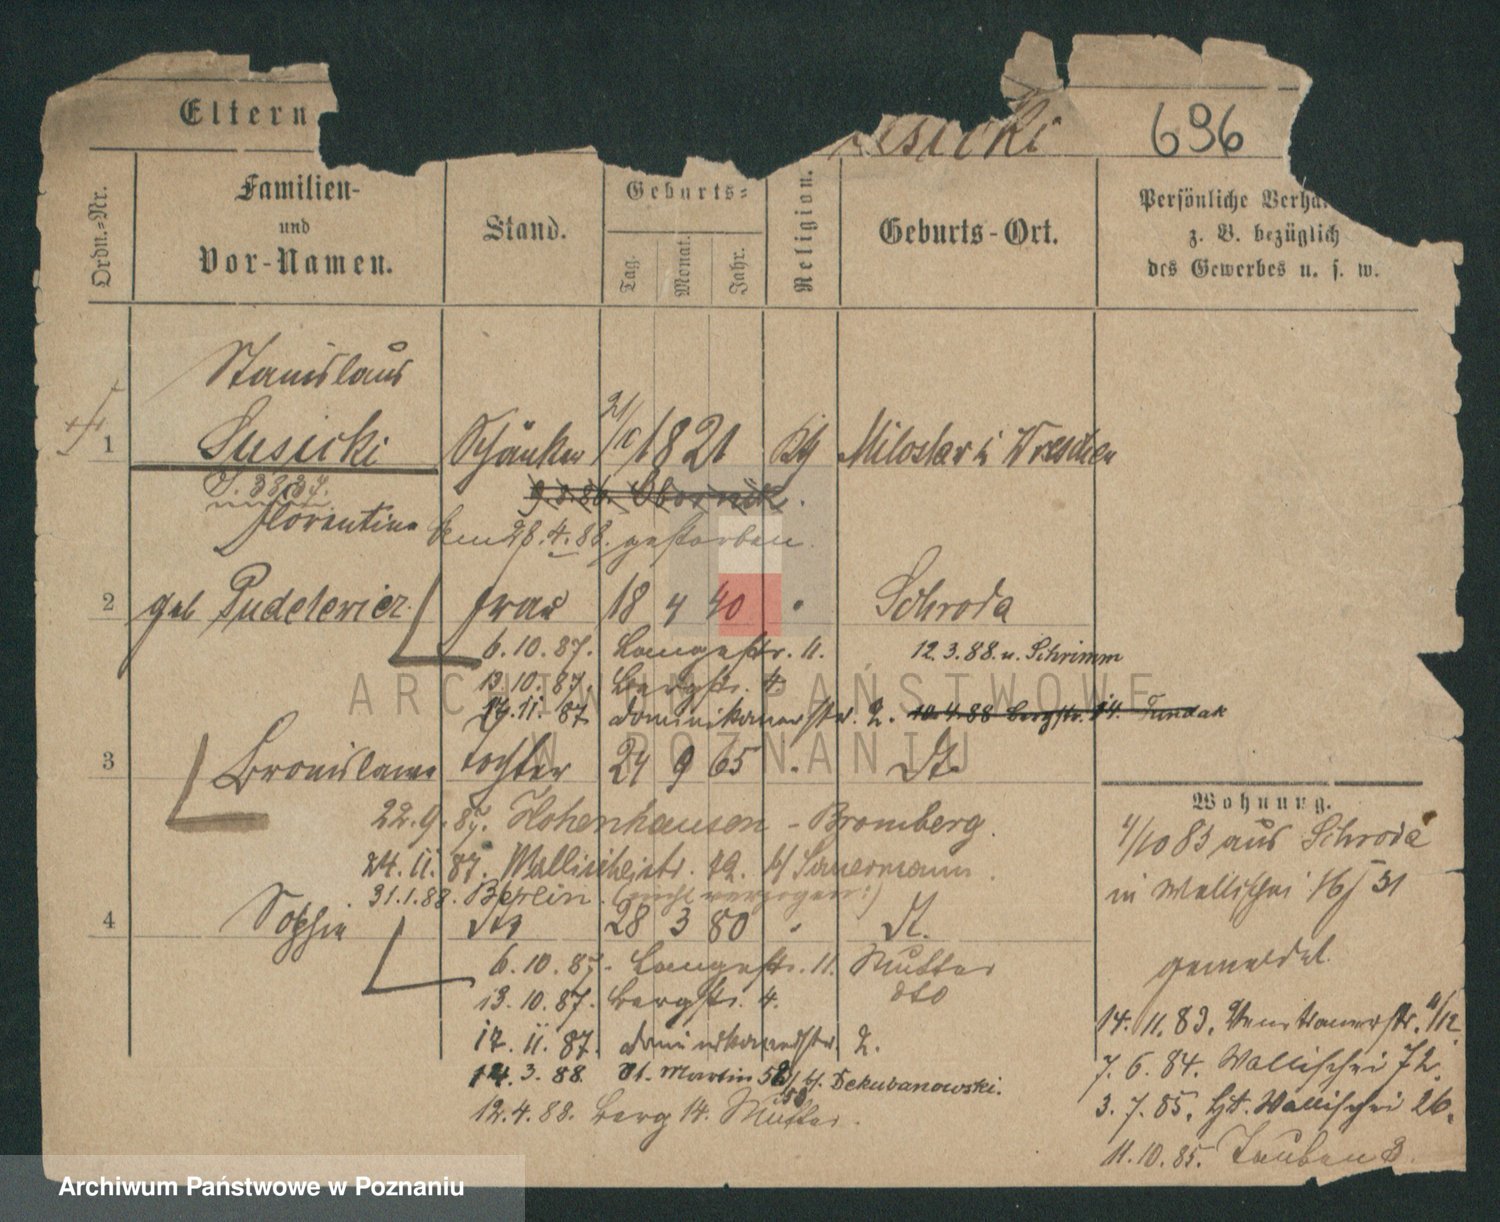 Eltern
esicki
696
Ordn.-Nr.
Familien-
und
Vor-Namen.
Stand.
Geburts-
Tag.
Monat.
Jahr.
Religion.
Geburts-Ort.
Persönliche Verhä
z. B. bezüglich
des Gewerbes u. s. w.
Stanislaus
1 Susicki Schänker 21/ 1821 Miloslaw i Wreschen
Florentine 28.4.88. gestorben.
2 geb Pudelewicz Frau 18 4 40 " Schroda
6.10.87. Langestr. 11. 12.3.88. n. Schrimm
13.10.87. Bergstr. 4.
17.11.87 Dominikanerstr. 2. 10.4.88 Bergstr. 14.
3 Bronislawa Tochter 24 9 65 "
22.9.87. Hohenhausen - Bromberg.
24.11.87. Wallischeistr. 72. b/ Sauermann.
31.1.88. Berlin. (nicht verzogen:)
4 Sophie dto 28 3 80 "
6.10.87. Langestr. 11. Mutter
13.10.87. Bergstr. 4. dto
17.11.87 Dominikanerstr. 2.
3.88. St. Martin 58 b/. Dekubanowski.
12.4.88. Berg 14. Mutter.
Wohnung.
4/10 83 aus Schroda
in Wallischei 16/31
gemeldet.
14.11.83. Venetianerstr. 11/12
7.6.84. Wallischei 72.
3.7.85. Wallischei 26.
11.10.85. Tauben 3.
ARCHIWUM PAŃSTWOWE
W POZNANIU
Archiwum Państwowe w Poznaniu